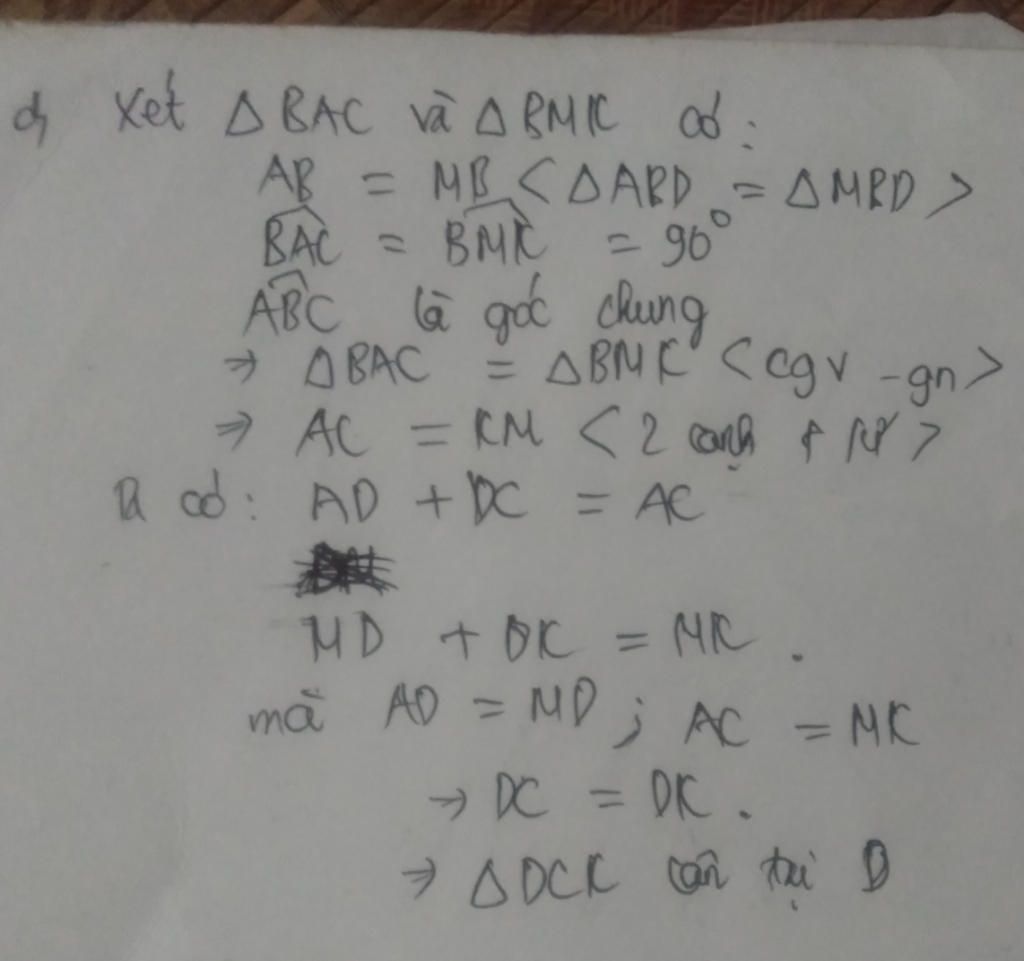 d, Xét Δ BAC và Δ BMK có :
AB = MB < ΔABD = ΔMBD >
BAC = BMK = 90°
ABC là góc chung
⇒ ΔBAC = ΔBMK < cgv - gn >
⇒ AC = KM < 2 cạnh >
Ta có : AD + DC = AC
MD + DK = MK .
mà AD = MD ; AC = MK
→ DC = DK .
⇒ ΔDCK cân tại D